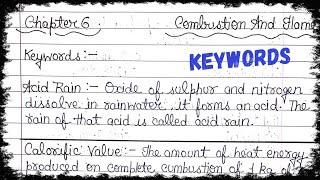 Chapter 6 Combustion And Flame
Keywords:-
KEYWORDS
Acid Rain:- Oxide of sulphur and nitrogen
dissolve in rainwater, it forms an acid. The
rain of that acid is called acid rain.
Calorific Value:- The amount of heat energy
produced on complete cumbustion of 1 kg of